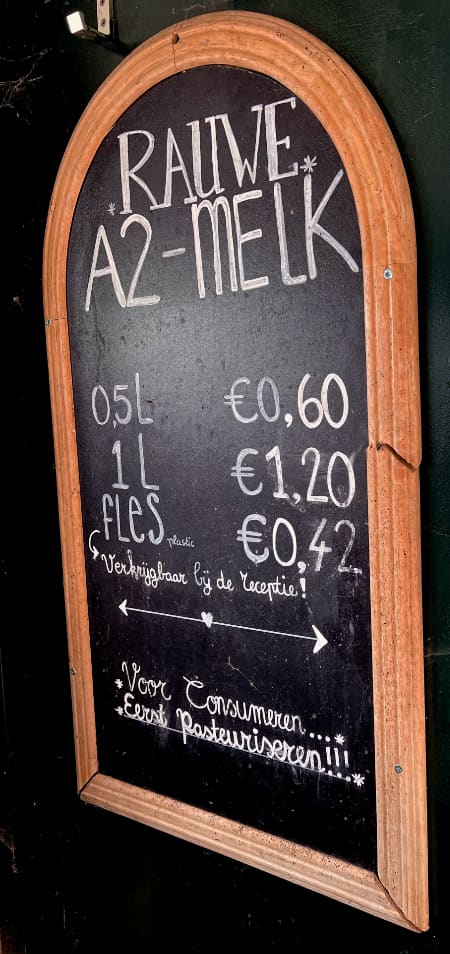 *RAUWE*
A2-MELK
0,5L €0,60
1L €1,20
FLES plastic €0,42
Verkrijgbaar bij de receptie!
*Voor Consumeren...*
*Eerst Pasteuriseren!!!...*